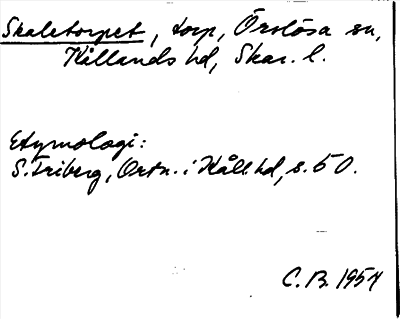 Skaletorpet, torp, Örslösa sn,
Kållands hd, Skar. l.
Etymologi:
S. Friberg, Ortn. i Kåll. hd, s. 50.
C. B. 1954